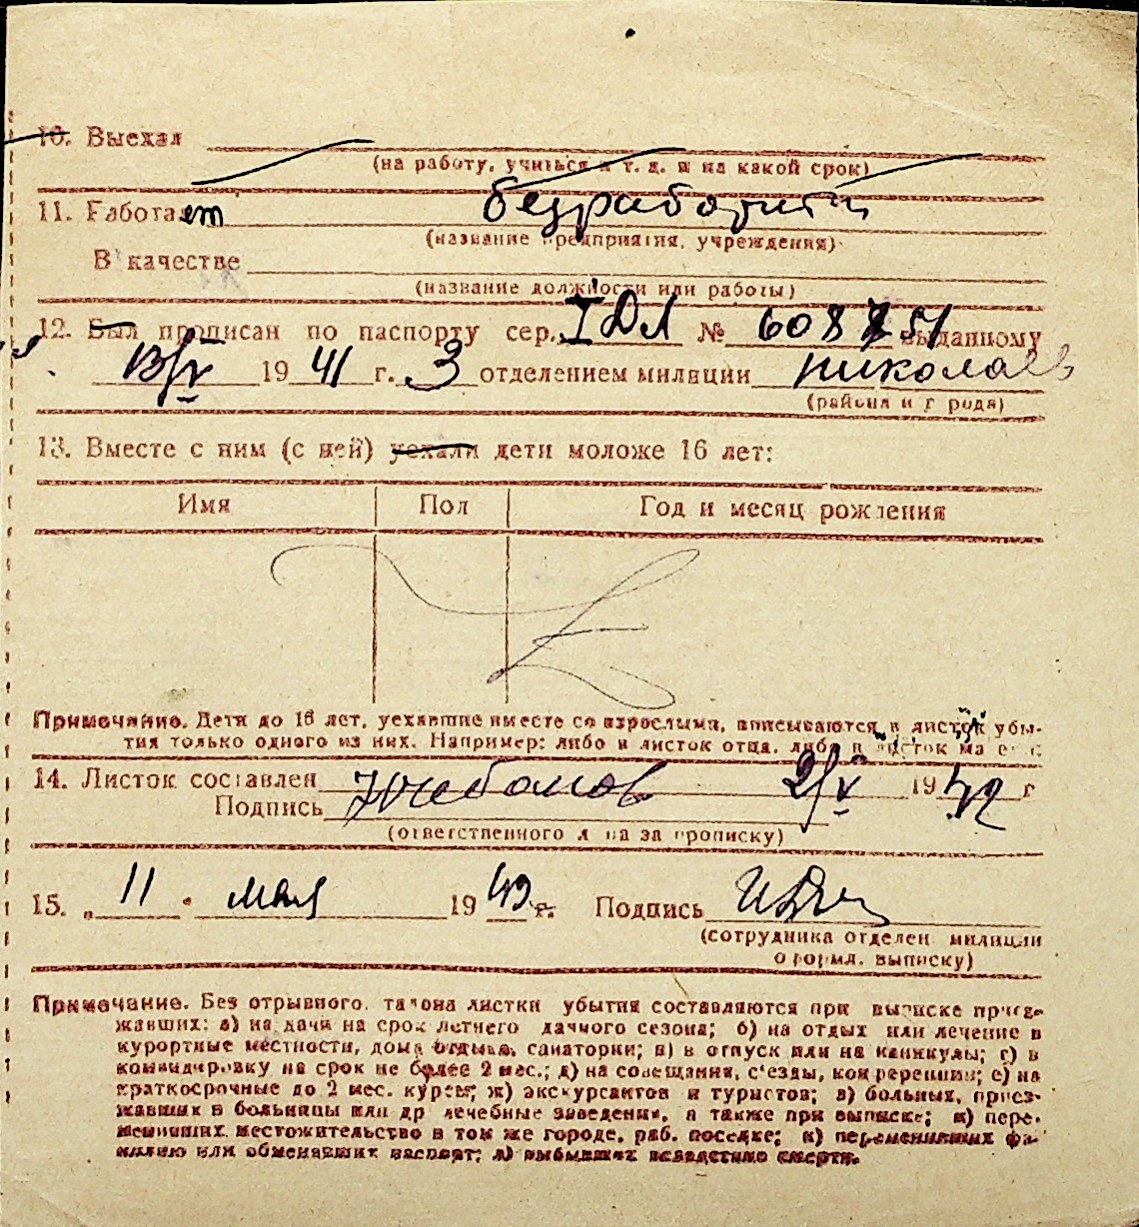 10. Выехал
(на работу, учиться и т. д. и на какой срок)
11. Работает безработный
(название предприятия, учреждения)
В качестве
(название должности или работы)
12. Был прописан по паспорту сер. I ДЛ № выданному
13/V 19 41 г. 3 отделением милиции Николаев
(района и города)
13. Вместе с ним (с ней) уехали дети моложе 16 лет:
Имя Пол Год и месяц рождения
Примечание. Дети до 16 лет, уехавшие вместе со взрослыми, вписываются в листок убы-
тия только одного из них. Например: либо в листок отца, либо в листок
14. Листок составлен 2/V 19 42 г
Подпись
(ответственного лица за прописку)
15. „ 11 " мая 19 42 г. Подпись
(сотрудника отделен милиции
оформл. выписку)
Примечание. Без отрывного талона листки убытия составляются при выписке приез-
жавших: а) на дачи на срок летнего дачного сезона; б) на отдых или лечение в
курортные местности, дома отдыха, санатории; в) в отпуск или на каникулы; г) в
командировку на срок не более 2 мес.; д) на совещания, с'езды, конференции; е) на
краткосрочные до 2 мес. курсы; ж) экскурсантов и туристов; з) больных, приез-
жавших в больницы или др лечебные заведения, а также при выписке; и) пере-
менивших местожительство в том же городе, раб. поселке; к) переменивших фа-
милию или обменявших паспорт; л) выбывших вследствие смерти.